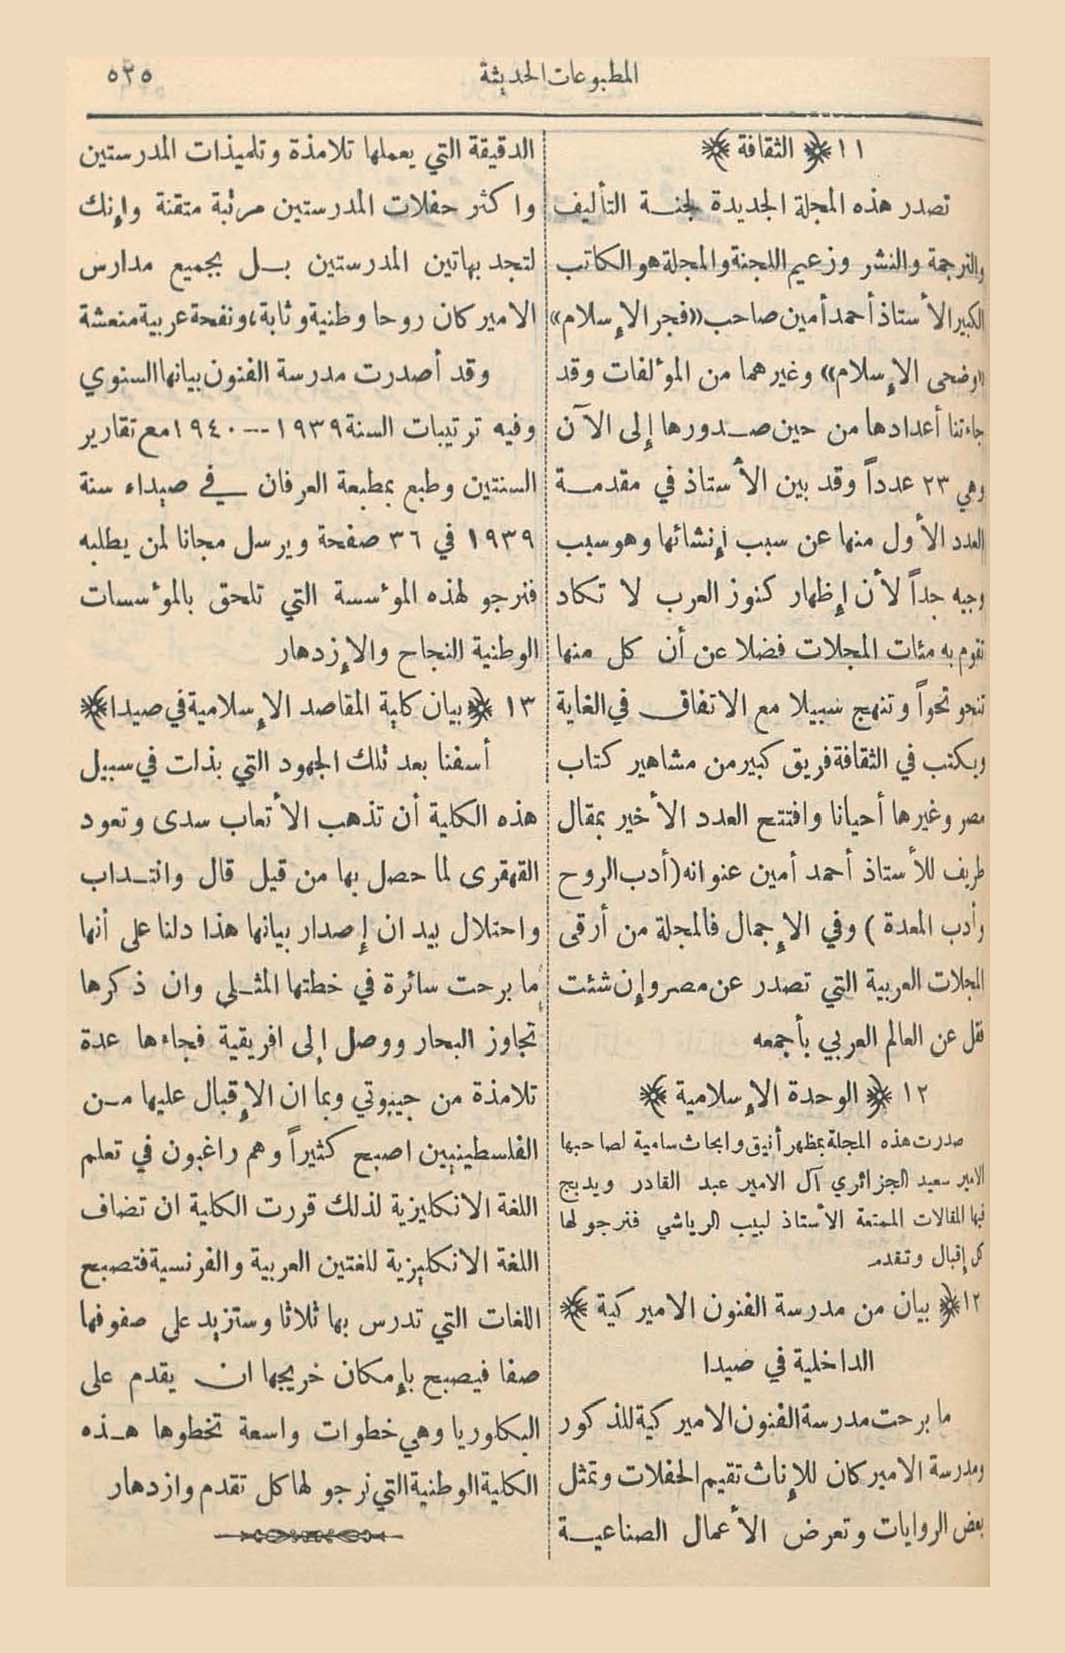 المطبوعات الحديثة
٥٢٥
١١ ﴿ الثقافة ﴾
تصدر هذه المجلة الجديدة لجنـة التأليف
والترجمة والنشر وزعيم اللجنة والمجلة هو الكاتب
الكبير الأستاذ أحمد أمين صاحب «فجر الإسلام»
«وضحى الإسلام» وغيرهما من المؤلفات وقد
جاءتنا أعدادها من حين صـدورها إلى الآن
وهي ٢٣ عدداً وقد بين الأستاذ في مقدمـة
العدد الأول منها عن سبب إنشائها وهو سبب
وجيه جداً لأن إظهار كنوز العرب لا تكاد
تقوم به مئات المجلات فضلا عن أن كل منها
تنحو نحواً وتنهج سبيلا مع الاتفاق في الغاية
ويكتب في الثقافة فريق كبير من مشاهير كتاب
مصر وغيرها أحيانا وافتتح العدد الأخير بمقال
طريف للأستاذ أحمد أمين عنوانه (أدب الروح
وأدب المعدة ) وفي الإجمال فالمجلة من أرقى
المجلات العربية التي تصدر عن مصر وإن شئت
فقل عن العالم العربي بأجمعه
١٢ ﴿ الوحدة الإسلامية ﴾
صدرت هذه المجلة بمظهر أنيق وابحاث سامية لصاحبها
الامير سعيد الجزائري آل الامير عبد القادر ويدبج
فيها المقالات الممتعة الأستاذ لبيب الرياشي فنرجو لها
كل إقبال وتقدم
١٢ ﴿ بيان من مدرسة الفنون الاميركية ﴾
الداخلية في صيدا
ما برحت مدرسة الفنون الاميركية للذكور
ومدرسة الاميركان للإناث تقيم الحفلات وتمثل
بعض الروايات وتعرض الأعمال الصناعيـة
الدقيقة التي يعملها تلامذة وتلميذات المدرستين
واكثر حفلات المدرستين مرتبة متقنة وإنك
لتجد بهاتين المدرستين بـل بجميع مدارس
الاميركان روحا وطنية وثابة، ونفحة عربية منعشة
وقد أصدرت مدرسة الفنون بيانها السنوي
وفيه ترتيبات السنة ١٩٣٩--١٩٤٠ مع تقارير
السنتين وطبع بمطبعة العرفان في صيداء سنة
١٩٣٩ في ٣٦ صفحة ويرسل مجانا لمن يطلبه
فنرجو لهذه المؤسسة التي تلحق بالمؤسسات
الوطنية النجاح والإزدهار
١٣ ﴿ بيان كلية المقاصد الإسلامية في صيدا ﴾
أسفنا بعد تلك الجهود التي بذلت في سبيل
هذه الكلية أن تذهب الأتعاب سدى وتعود
القهقرى لما حصل بها من قيل قال وانتـداب
واحتلال بيد ان إصدار بيانها هذا دلنا على أنها
ما برحت سائرة في خطتها المثـلى وان ذكرها
تجاوز البحار ووصل إلى افريقية فجاءها عدة
تلامذة من جيبوتي وبما ان الإقبال عليها مـن
الفلسطينيين اصبح كثيراً وهم راغبون في تعلم
اللغة الانكليزية لذلك قررت الكلية ان تضاف
اللغة الانكليزية للغتين العربية والفرنسية فتصبح
اللغات التي تدرس بها ثلاثا وستزيد على صفوفها
صفا فيصبح بإمكان خريجها ان يقدم على
البكاوريا وهي خطوات واسعة تخطوها هـذه
الكلية الوطنية التي نرجو لها كل تقدم وازدهار